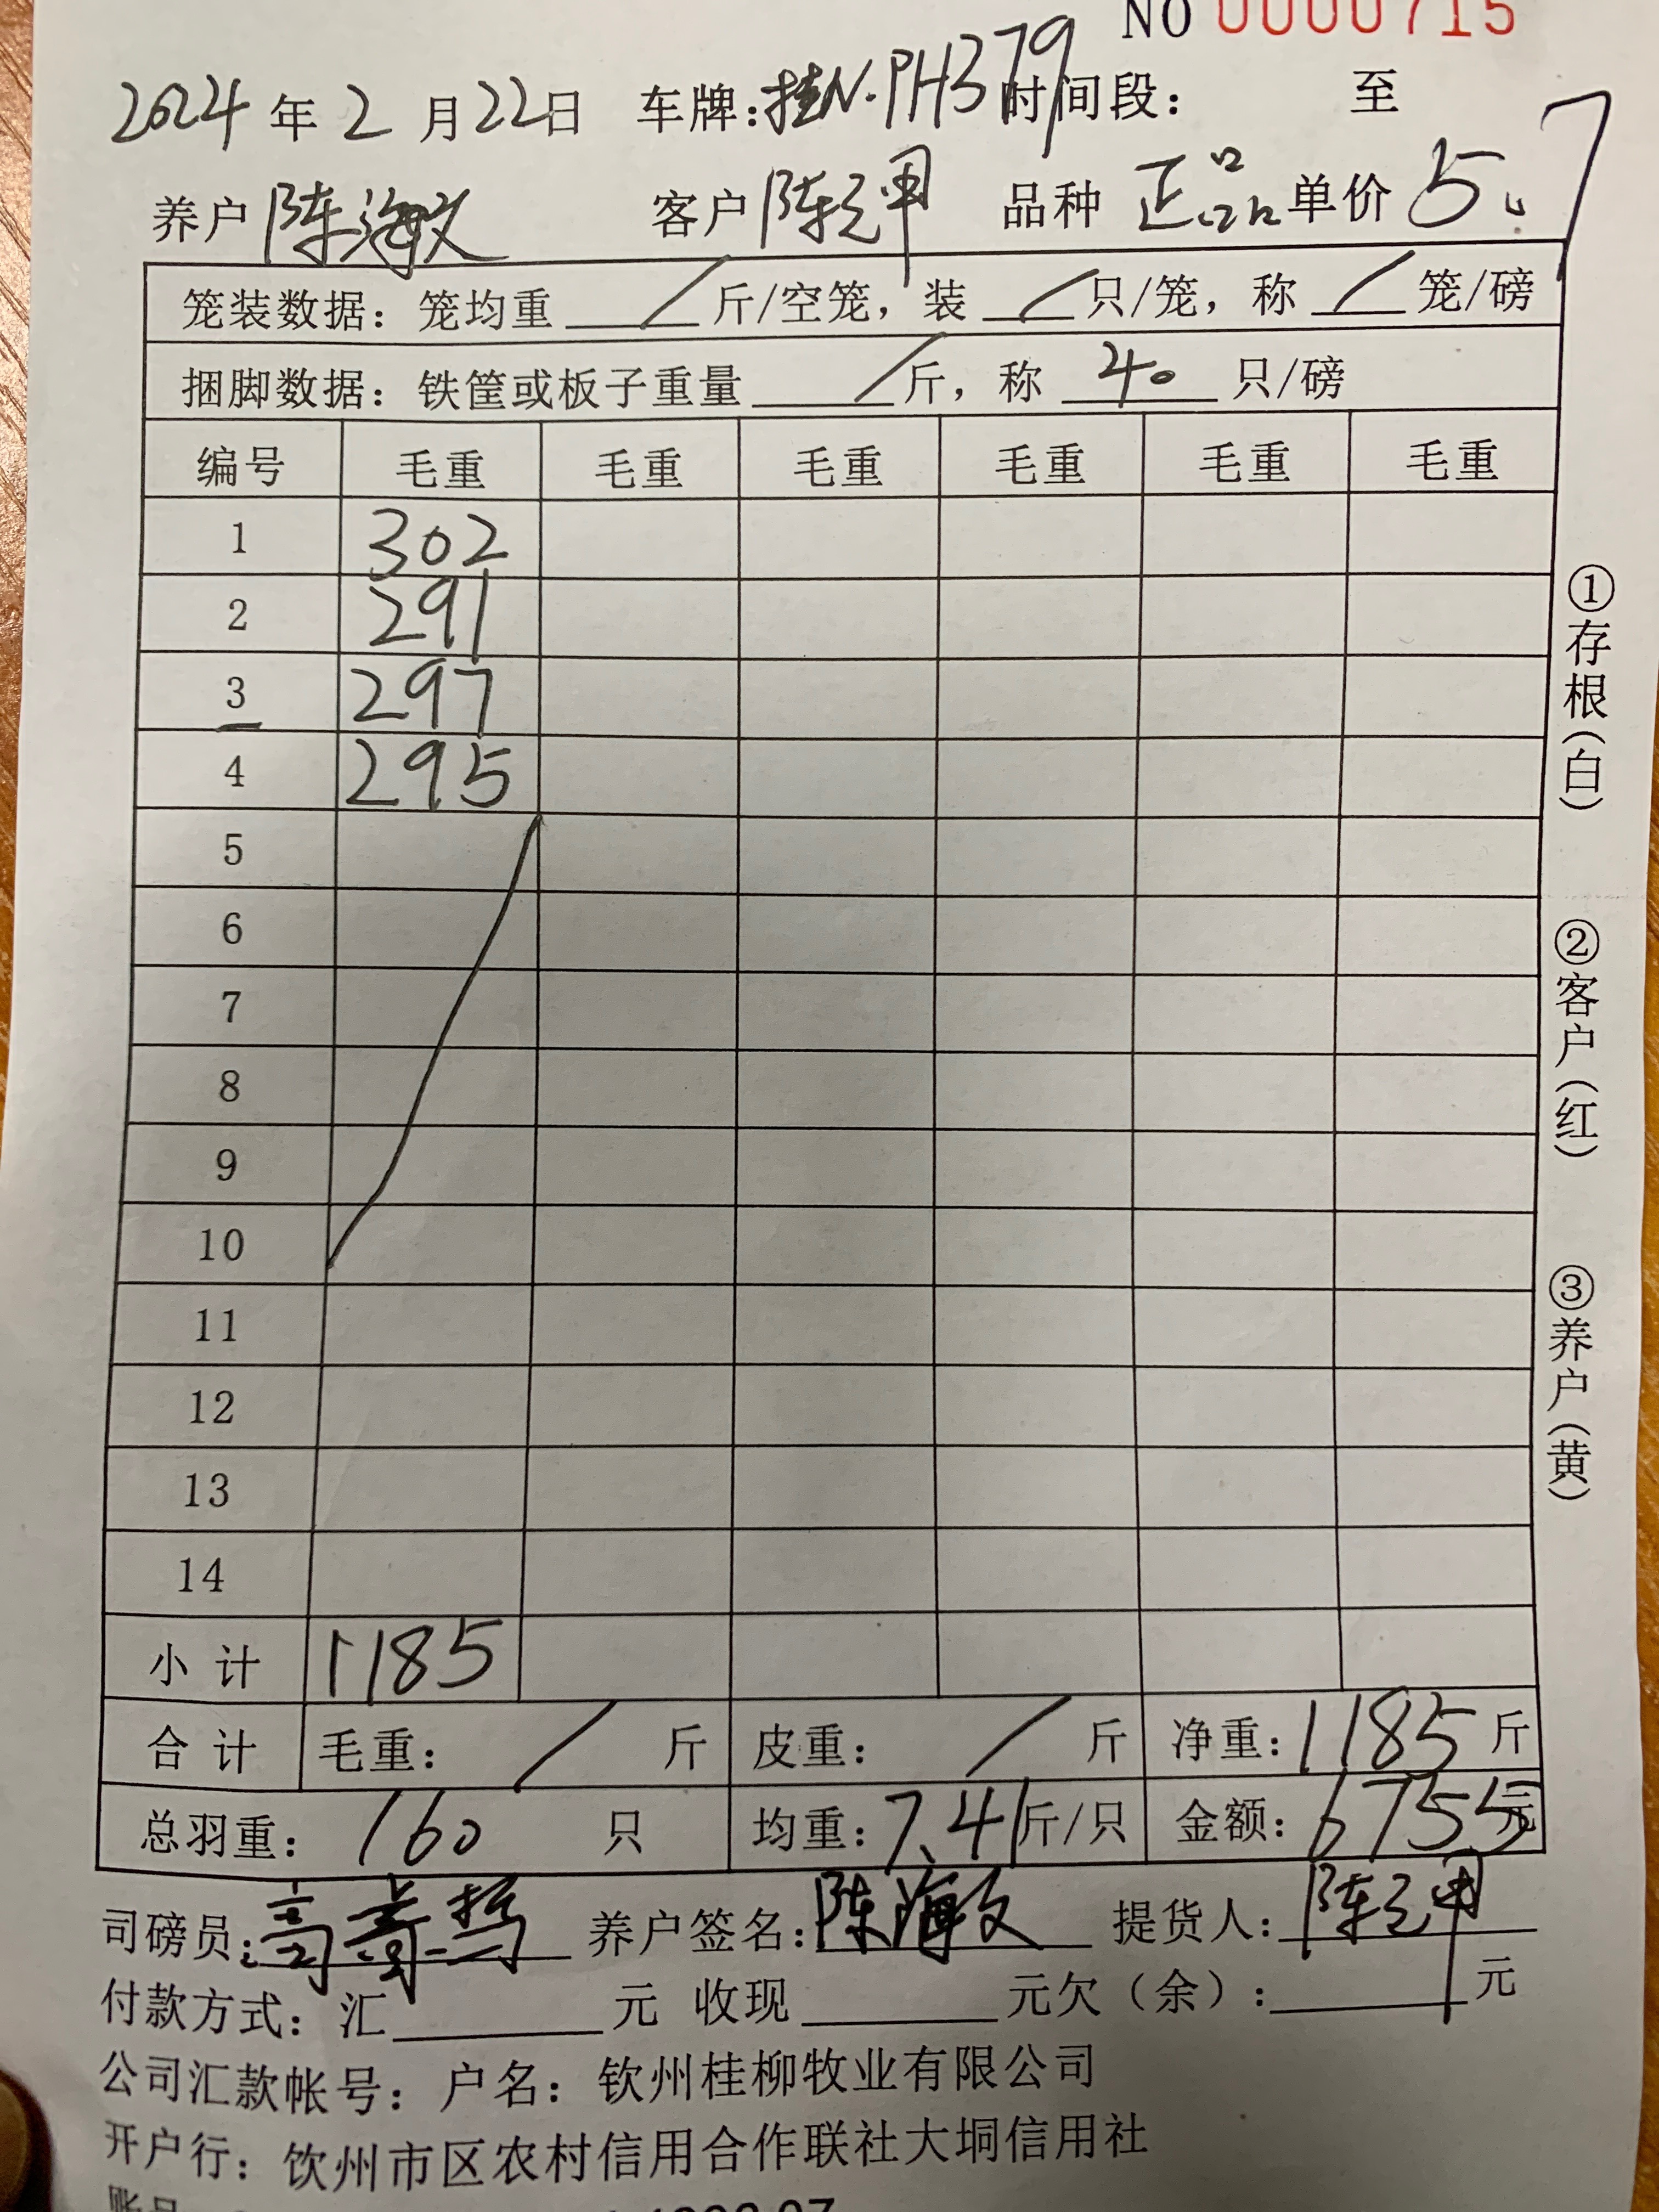 NO 0000715
2024 年 2 月 22 日 车牌：桂N·PH379 时间段： 至
养户 陈海文 客户 陈立甲 品种 正品 单价 5.7
笼装数据：笼均重 / 斤/空笼，装 / 只/笼，称 / 笼/磅
捆脚数据：铁筐或板子重量 / 斤，称 40 只/磅
编号 毛重 毛重 毛重 毛重 毛重 毛重
1 302
2 291
3 297
4 295
5
6
7
8
9
10
11
12
13
14
小计 1185
合计 毛重： / 斤 皮重： / 斤 净重：1185 斤
总羽重： 160 只 均重：7.41 斤/只 金额：6755 元
司磅员： 养户签名：陈海文 提货人：陈立甲
付款方式：汇 元 收现 元欠（余）： 元
公司汇款帐号：户名：钦州桂柳牧业有限公司
开户行：钦州市区农村信用合作联社大垌信用社
①存根（白）
②客户（红）
③养户（黄）